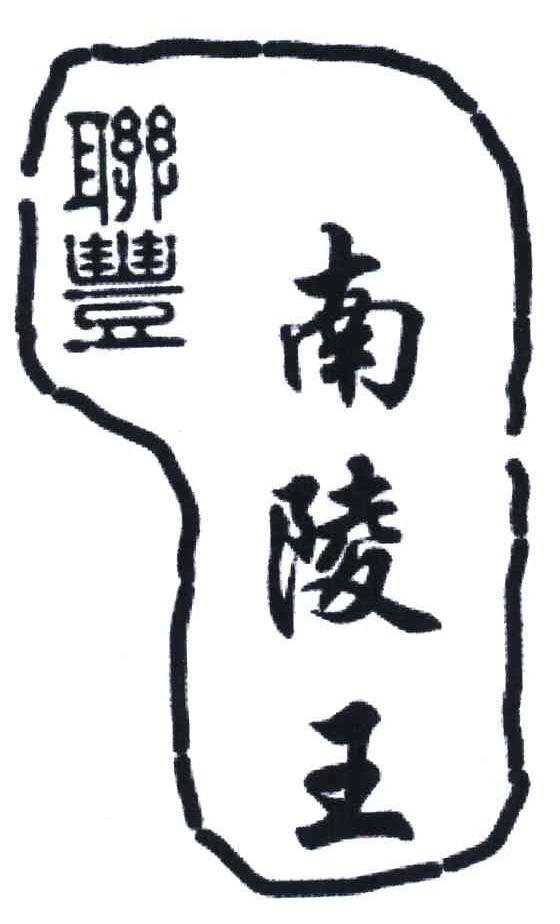 聯豐
南陵王